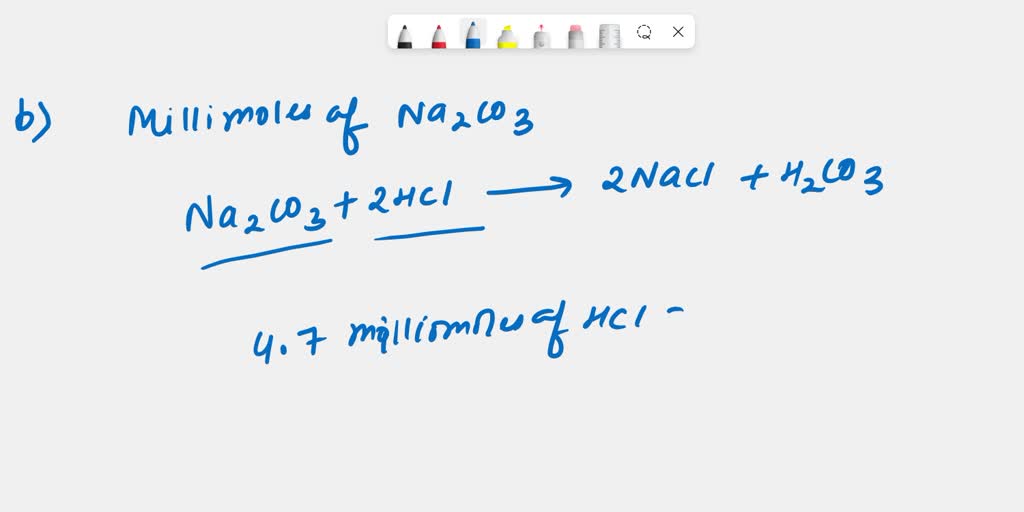 b) Millimoles of Na2CO3
Na2CO3 + 2HCl → 2NaCl + H2CO3
4.7 milliomoles of HCl -